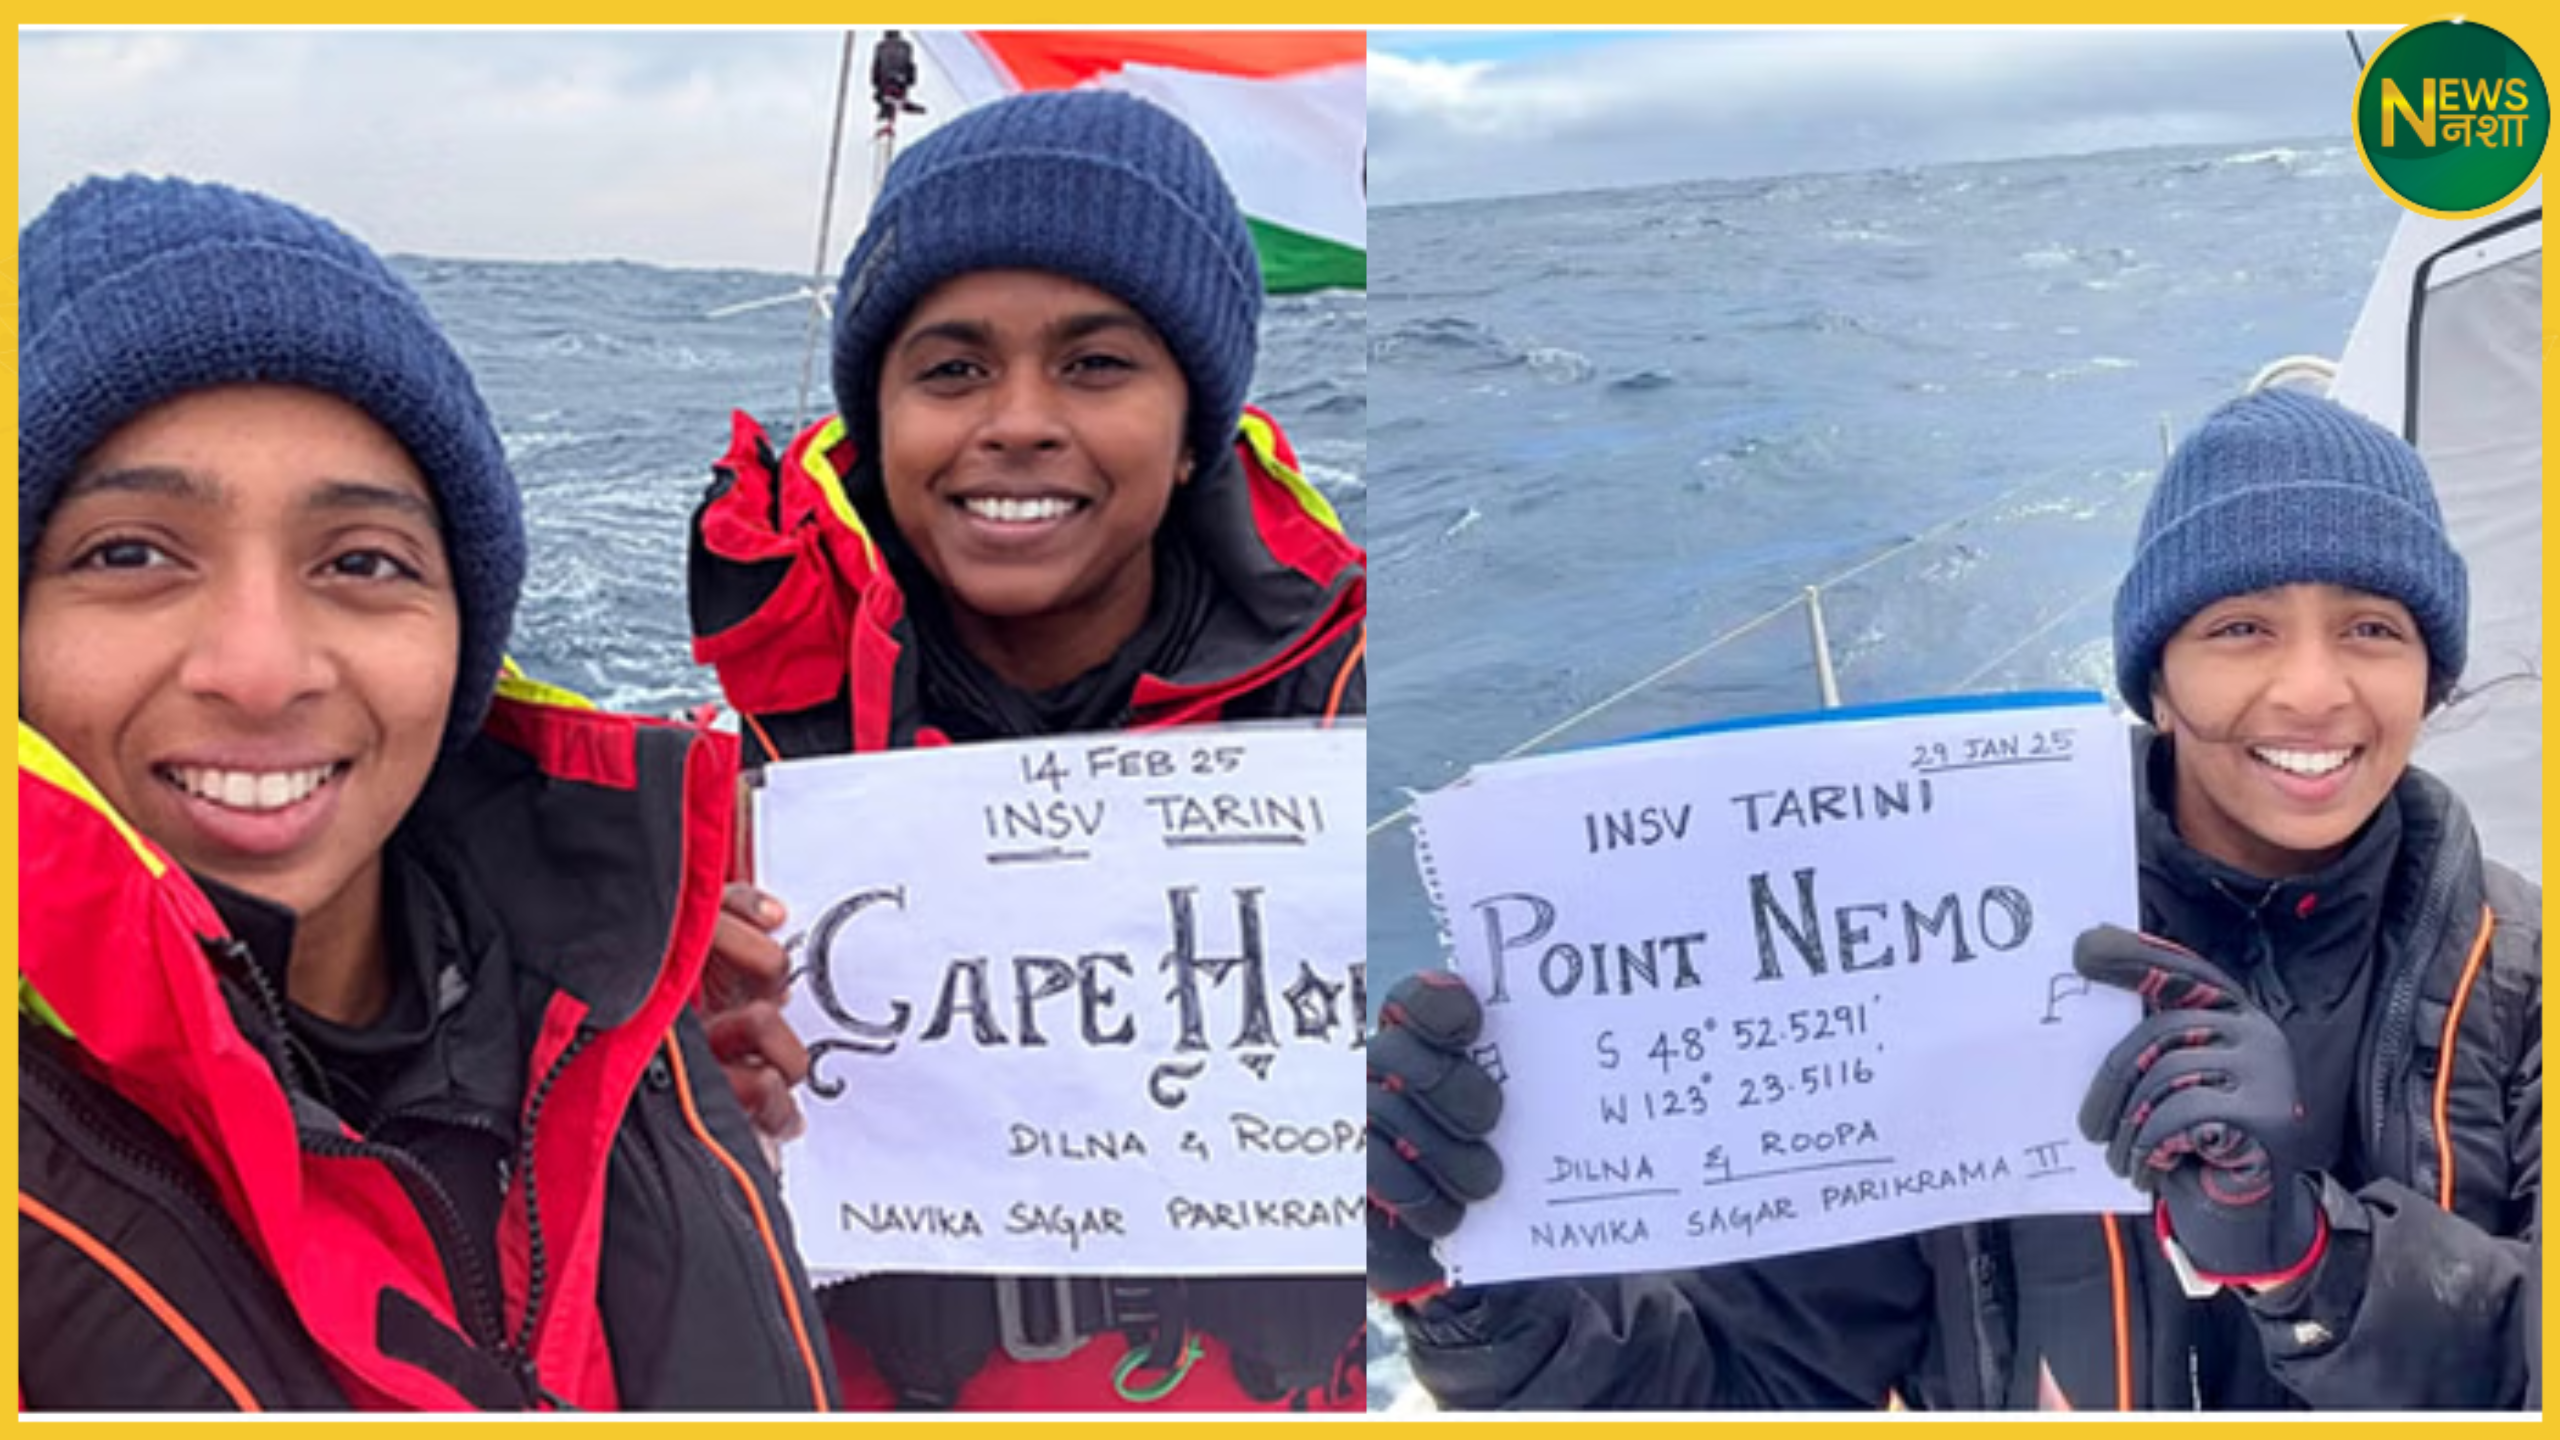 14 FEB 25
INSV TARINI
CAPE HO
DILNA & ROOPA
NAVIKA SAGAR PARIKRAM
NEWS
नशा
29 JAN 25
INSV TARINI
POINT NEMO
S 48° 52.5291'
W 123° 23.5116'
DILNA & ROOPA
NAVIKA SAGAR PARIKRAMA II